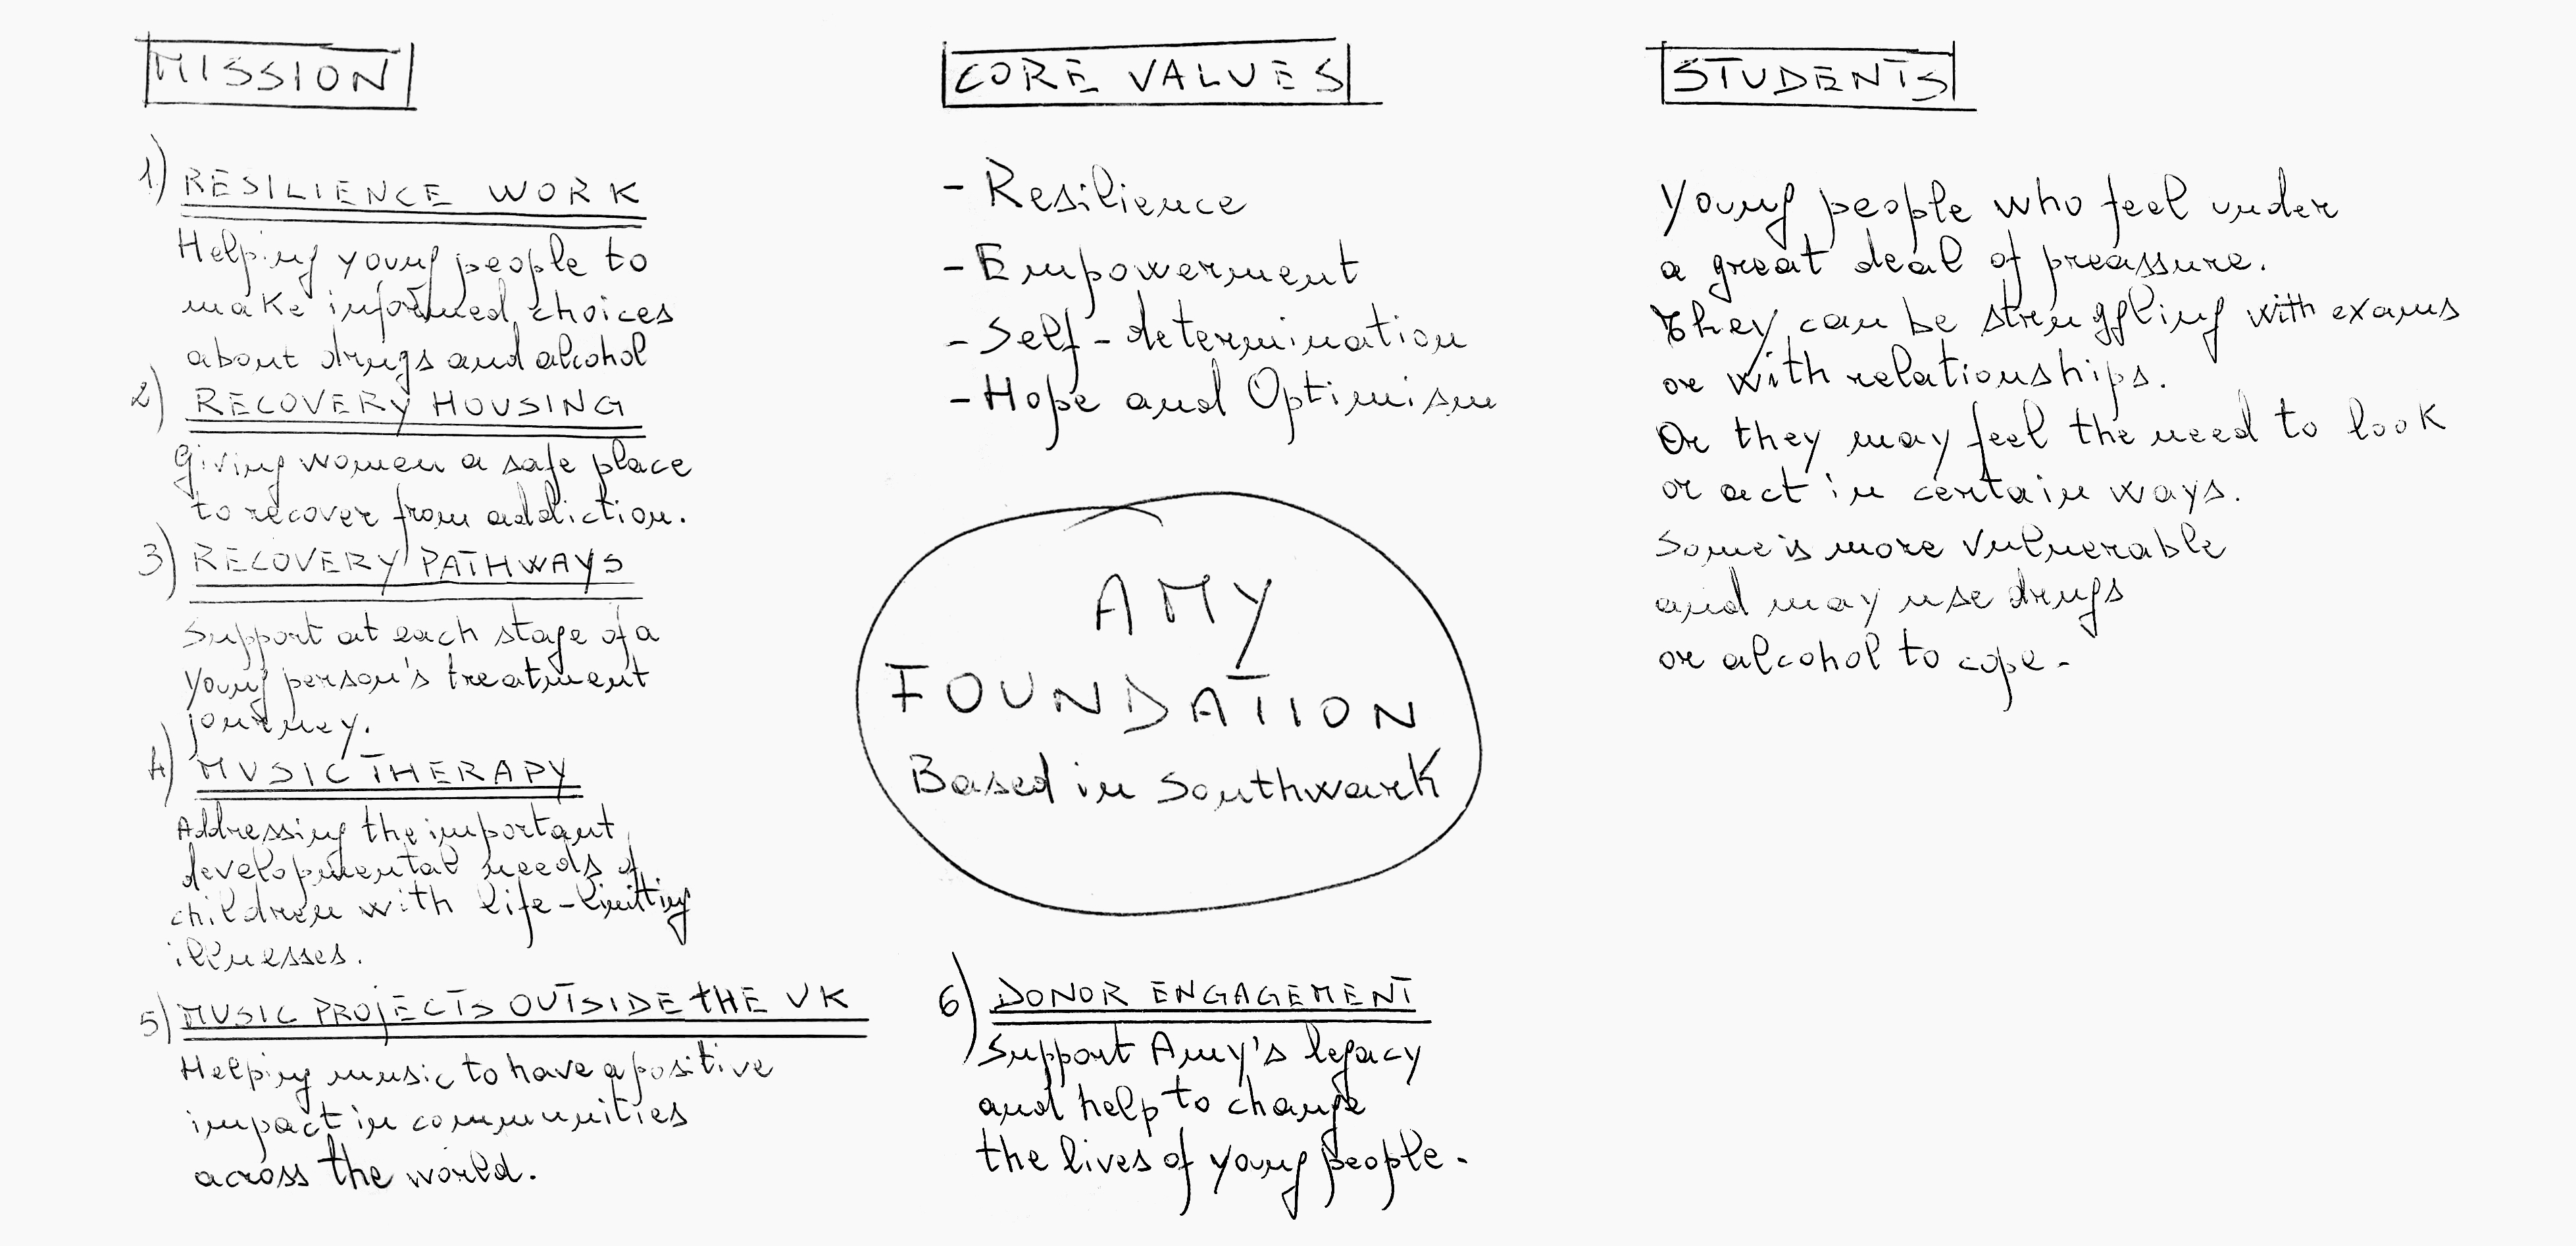 MISSION
1) RESILIENCE WORK
Helping young people to
make informed choices
about drugs and alcohol
2) RECOVERY HOUSING
Giving women a safe place
to recover from addiction.
3) RECOVERY PATHWAYS
Support at each stage of a
young person's treatment
journey.
4) MUSIC THERAPY
Addressing the important
developmental needs of
children with life-limiting
illnesses.
5) MUSIC PROJECTS OUTSIDE THE UK
Helping music to have a positive
impact in communities
across the world.
CORE VALUES
- Resilience
- Empowerment
- Self-determination
- Hope and Optimism
AMY
FOUNDATION
Based in Southwark
6) DONOR ENGAGEMENT
Support Amy's legacy
and help to change
the lives of young people.
STUDENTS
Young people who feel under
a great deal of preassure.
They can be struggling with exams
or with relationships.
Or they may feel the need to look
or act in certain ways.
Some is more vulnerable
and may use drugs
or alcohol to cope.